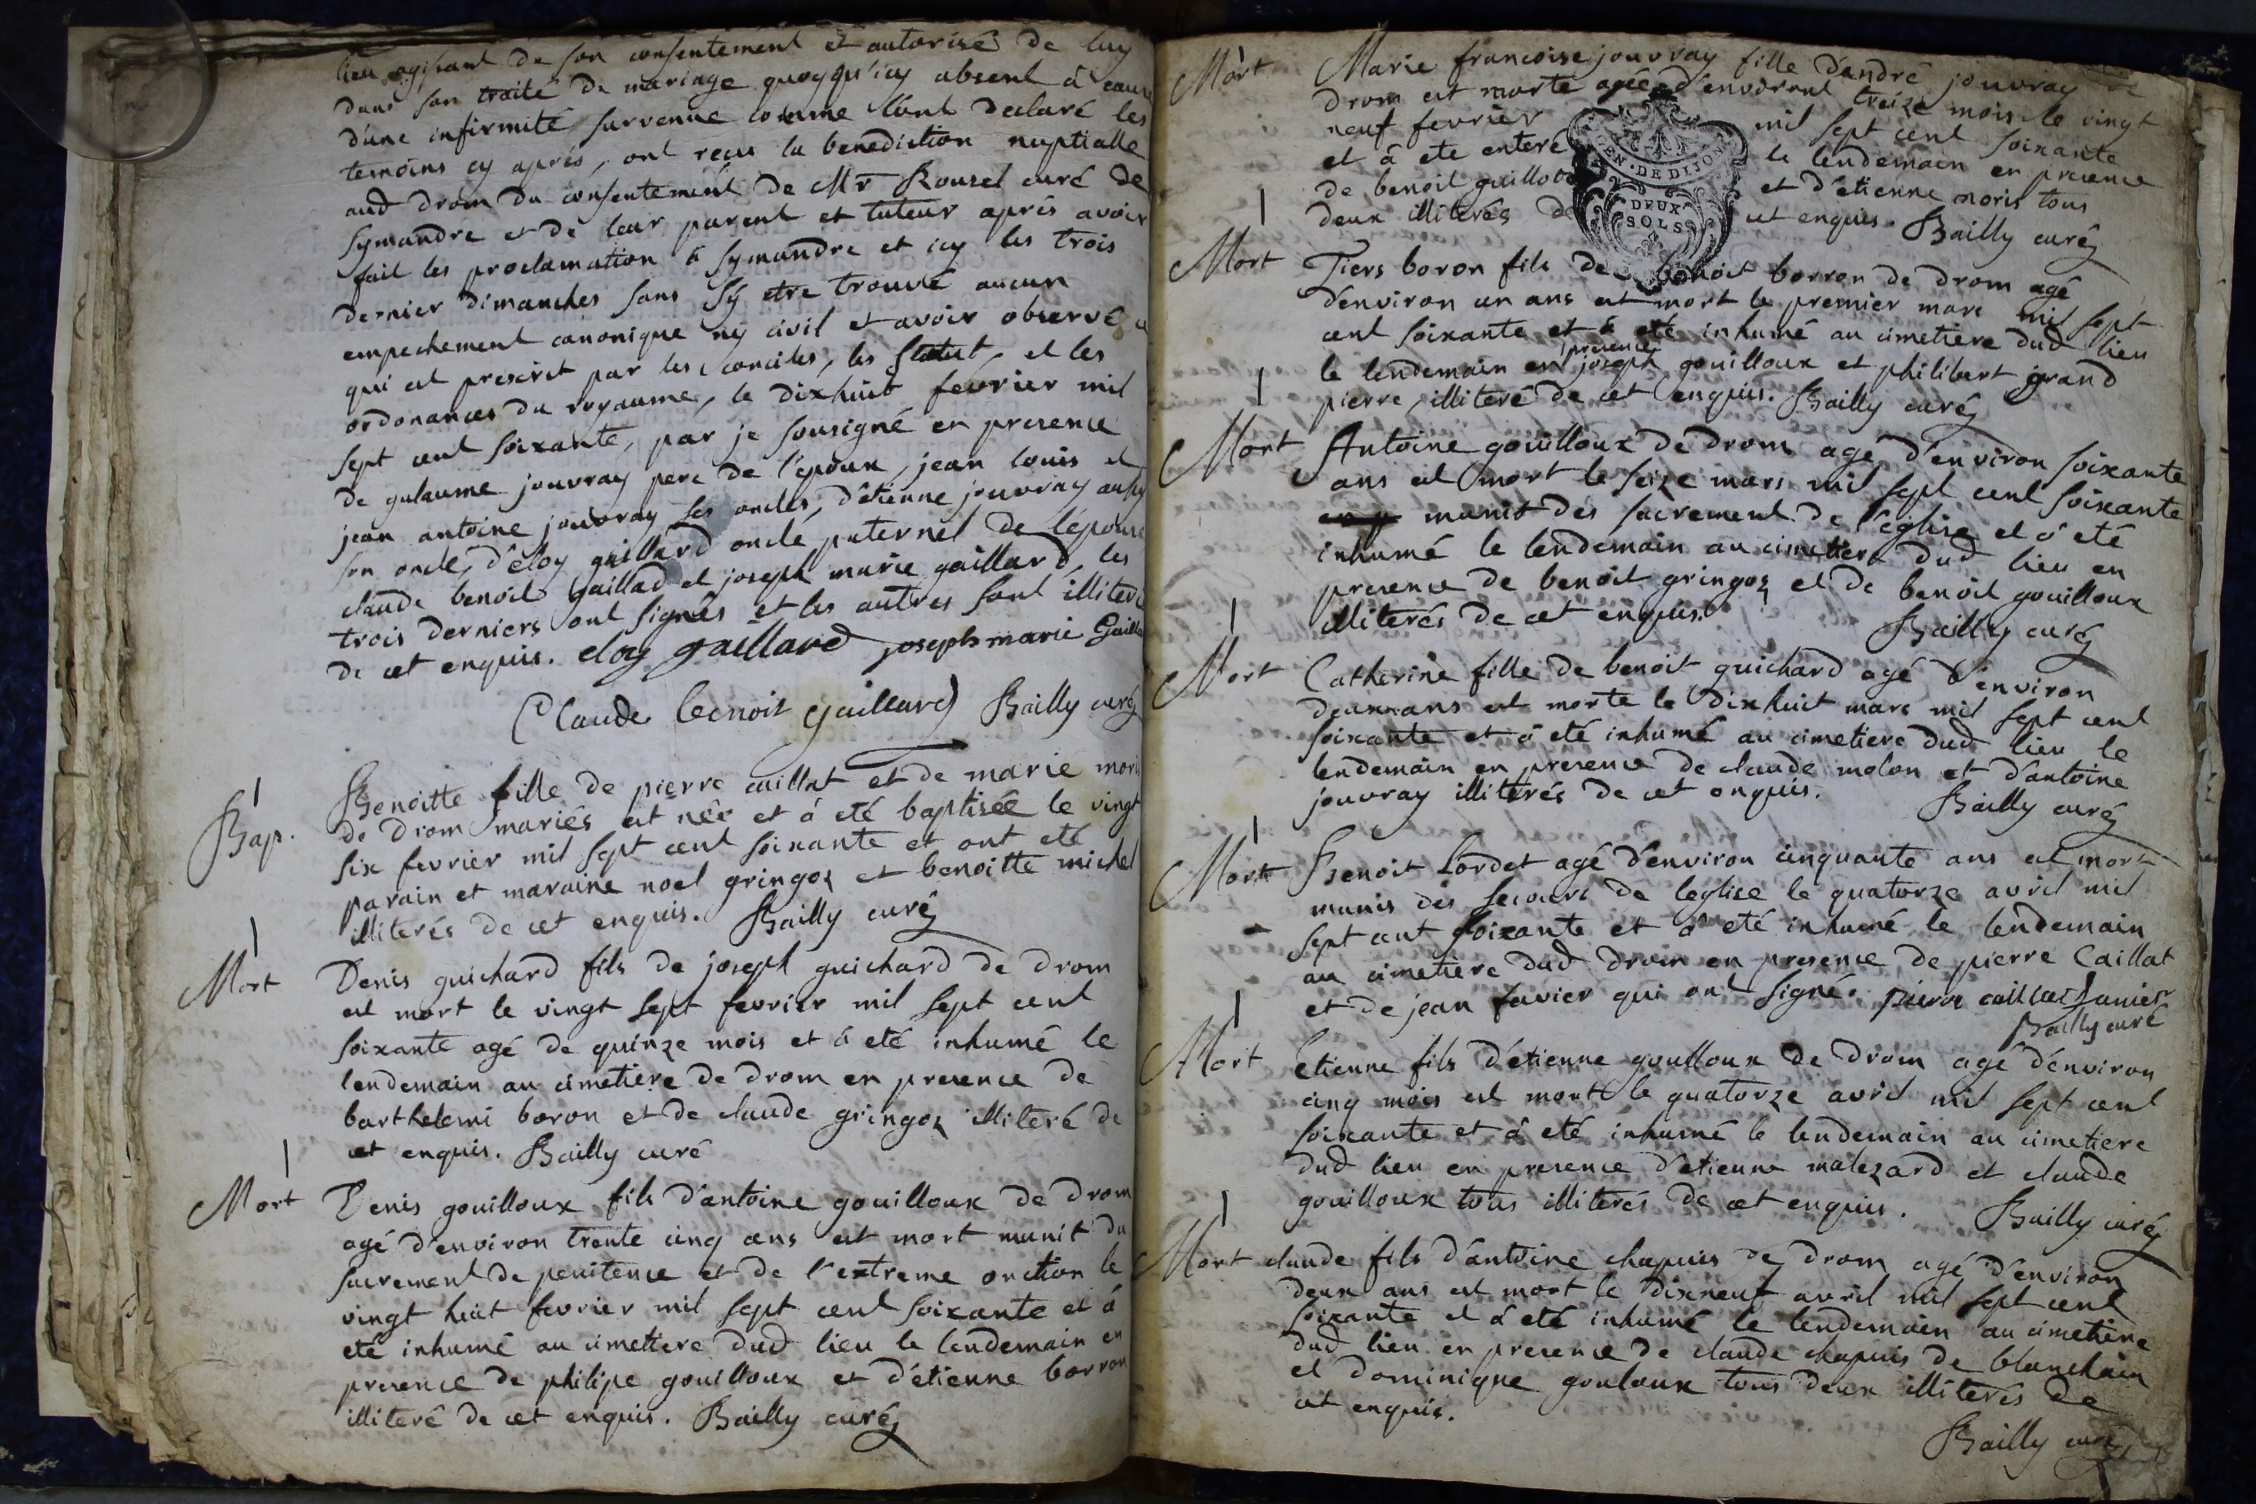 lieu agissant de son consentement et autorisé de luy
dans son traité de mariage quoyqu'icy absent à cause
d'une infirmité survenüe comme l'ont declaré les
temoins cy après, ont reçu la benediction nuptialle
aud drom du consentement de Mr Rousel curé de
Symandre et de leur parent et tuteur après avoir
fait les proclamation à Symandre et icy les trois
dernier dimanches sans s'y etre trouvé aucun
empechement canonique ny civil et avoir observé ce
qui est prescrit par les conciles, les statut, et les
ordonances du royaume, le dixhuit fevrier mil
sept cent soixante, par je sousigné en presence
de gulaume jouvray pere de l'epoux, jean louis et
jean antoine jouvray ses oncles, d'étienne jouvray aussy
son oncle, d'éloy gaillard oncle paternel de l'épouse
claude benoit gaillad et joseph marie gaillard, les
trois derniers ont signés et les autres sont illiteré
de cet enquis. eloy gaillard joseph marie Gaillard
Claude benoit gaillard Bailly curé
Bap. Benoitte fille de pierre caillat et de marie moris
de drom mariés est née et à eté baptisée le vingt
six fevrier mil sept cent soixante et ont eté
parain et maraine noel gringoz et benoitte michel
illiterés de cet enquis. Bailly curé
Mort Denis guichard fils de joseph guichard de drom
est mort le vingt sept fevrier mil sept cent
soixante agé de quinze mois et à eté inhumé le
lendemain au cimetiere de drom en presence de
barthelemi boron et de claude gringoz illiteré de
cet enquis. Bailly curé
Mort Denis gouilloux fils d'antoine gouilloux de drom
agé d'environ trente cinq ans est mort munit du
sacrement de penitence et de l'extreme onction le
vingt huit fevrier mil sept cent soixante et à
eté inhumé au cimettere dud lieu le lendemain en
presence de philipe gouilloux et d'étienne borron
illiteré de cet enquis. Bailly curé
Mort Marie francoise jouvray fille d'andré jouvray de
drom est morte agée d'environt treize mois le vingt
neuf fevrier mil sept cent soixante
et à ete enteré le lendemain en presence
de benoit guillot et d'étienne moris tous
deux illiterés de cet enquis. Bailly curé
EN. DE DIJON
DEUX
SOLS
Mort Tiers boron fils de benoit borron de drom agé
d'environ un ans est mort le premier mars mil sept
cent soixante et à eté inhumé au cimetiere dud lieu
le lendemain en presence joseph gouilloux et philibert grand
pierre, illiteré de cet enquis. Bailly curé
Mort Antoine gouilloux de drom agé d'environ soixante
ans est mort le seize mars mil sept cent soixante
munit des sacrement de l'église et à eté
inhumé le lendemain au cimetiere dud lieu en
presence de benoit gringoz et de benoit gouilloux
illiterés de cet enquis.
Bailly curé
Mort Catherine fille de benoit guichard agé d'environ
deux ans est morte le dixhuit mars mil sept cent
soixante et à eté inhumé au cimetiere dud lieu le
lendemain en presence de claude molon et d'antoine
jouvray illiterés de cet enquis.
Bailly curé
Mort Benoit Lordet agé d'environ cinquante ans est mort
munis des secours de l'eglise le quatorze avril mil
sept cent soixante et à eté inhumé le lendemain
au cimetiere dud drom en presence de pierre Caillat
et de jean favier qui ont signé. pierre caillat J favier
Bailly curé
Mort Etienne fils d'étienne goulloux de drom agé d'environ
cinq mois est mort le quatorze avril mil sept cent
soixante et à eté inhumé le lendemain au cimetiere
dud lieu en presence d'etienne malezard et claude
gouilloux tous illiterés de cet enquis.
Bailly curé
Mort claude fils d'antoine chapuis de drom agé d'environ
deux ans est mort le dixneuf avril mil sept cent
soixante et à eté inhumé le lendemain au cimetiere
dud lieu en presence de claude chapuis de blanchain
et dominique gouloux tous deux illiterés de
cet enquis.
Bailly curé